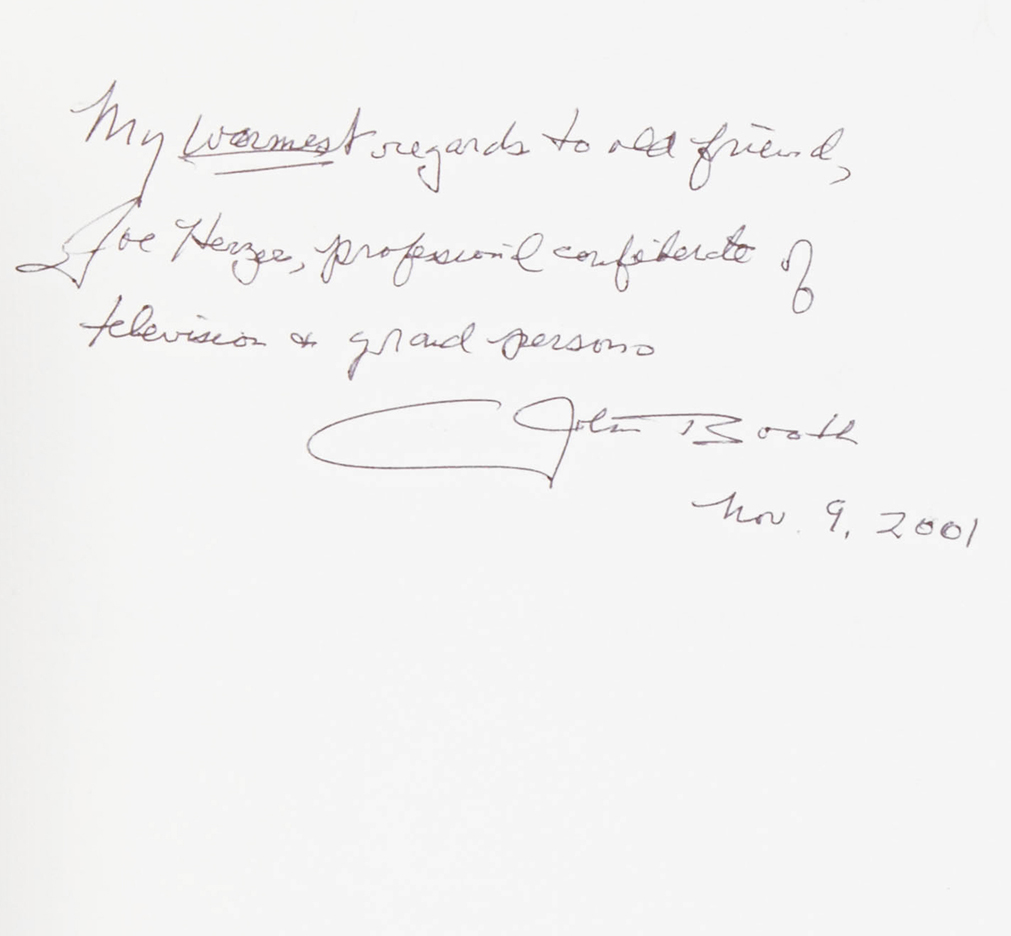 My warmest regards to old friend,
Joe professional of
television & grand
John Booth
Nov. 9, 2001